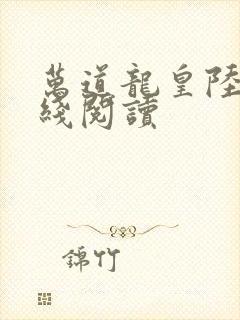 萬道龍皇陸
綫閱讀
錦竹